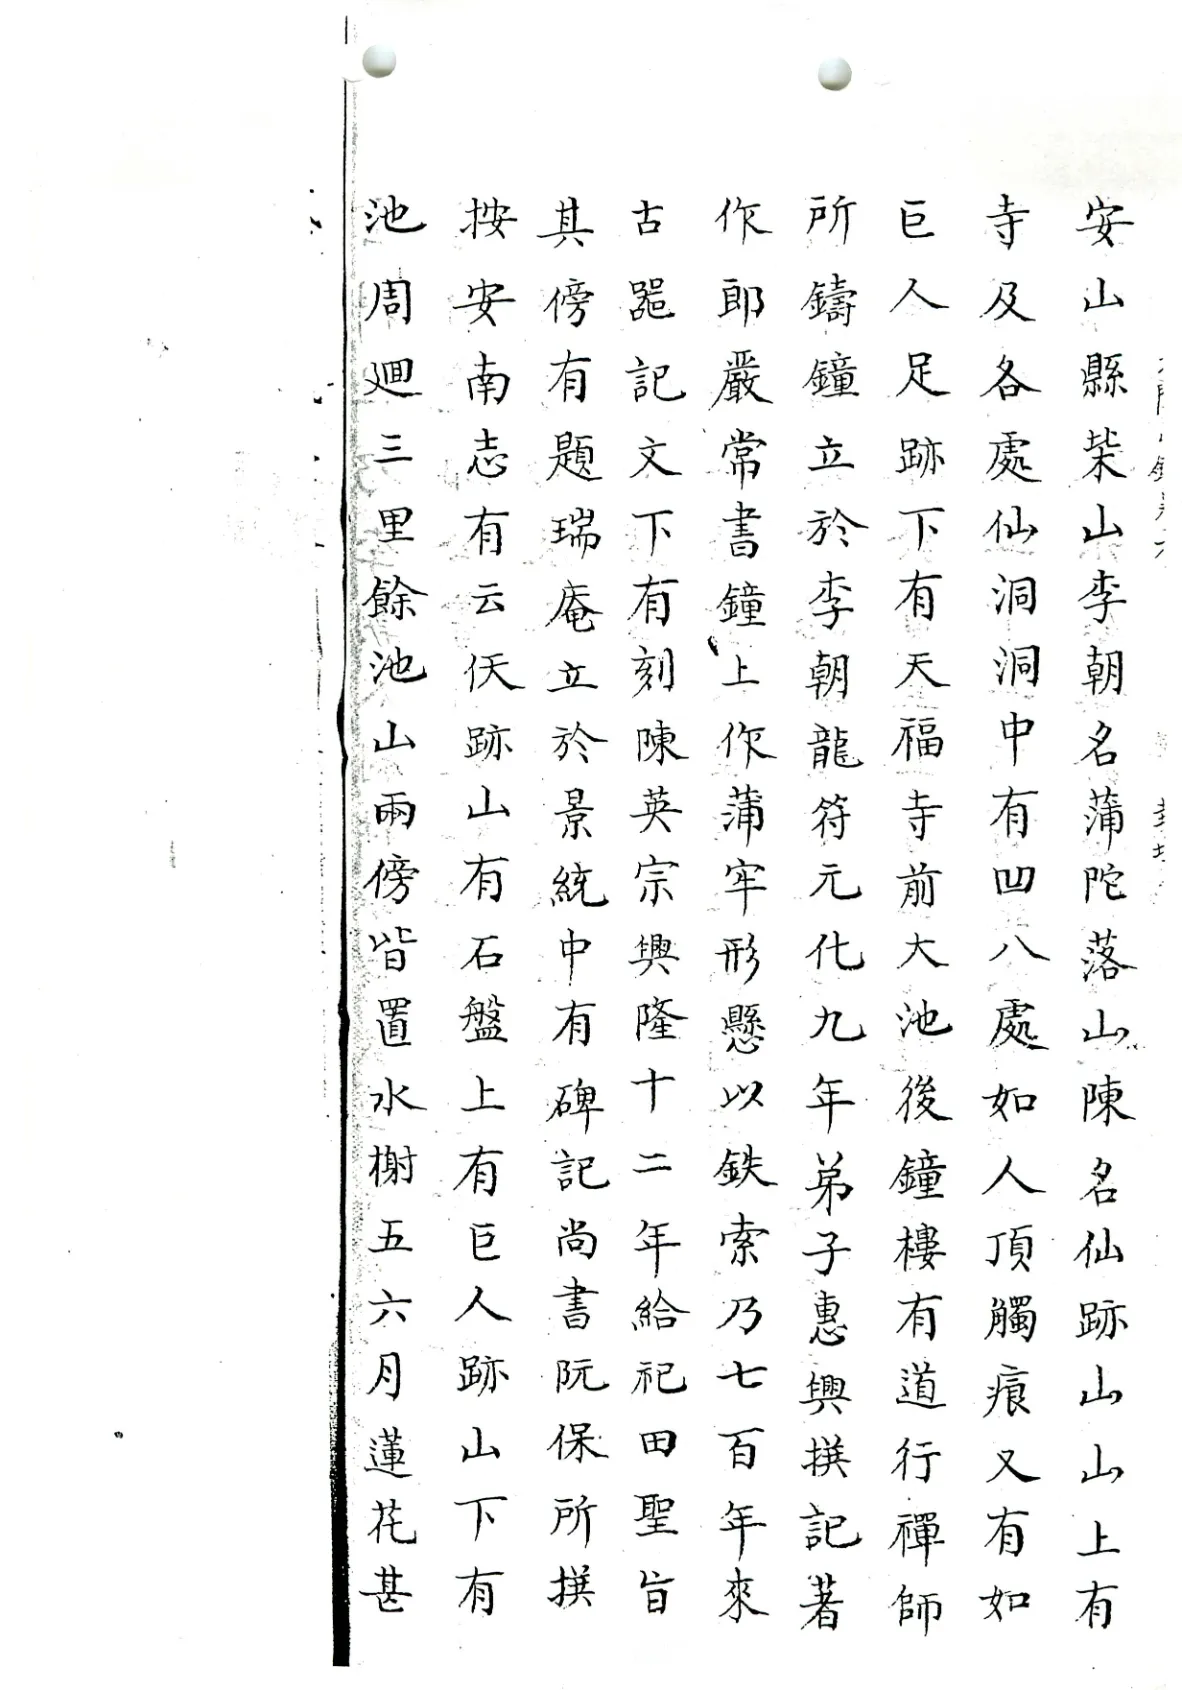 安山縣柴山李朝名蒲陀落山陳名仙跡山山上有
寺及各處仙洞洞中有凹八處如人頂觸痕又有如
巨人足跡下有天福寺前大池後鐘樓有道行禪師
所鑄鐘立於李朝龍符元化九年弟子惠興撰記著
作郎嚴常書鐘上作蒲牢形懸以鉄索乃七百年來
古噐記文下有刻陳英宗興隆十二年給祀田聖旨
其傍有題瑞庵立於景統中有碑記尚書阮保所撰
按安南志有云仸跡山有石盤上有巨人跡山下有
池周廻三里餘池山兩傍皆置水榭五六月蓮花甚